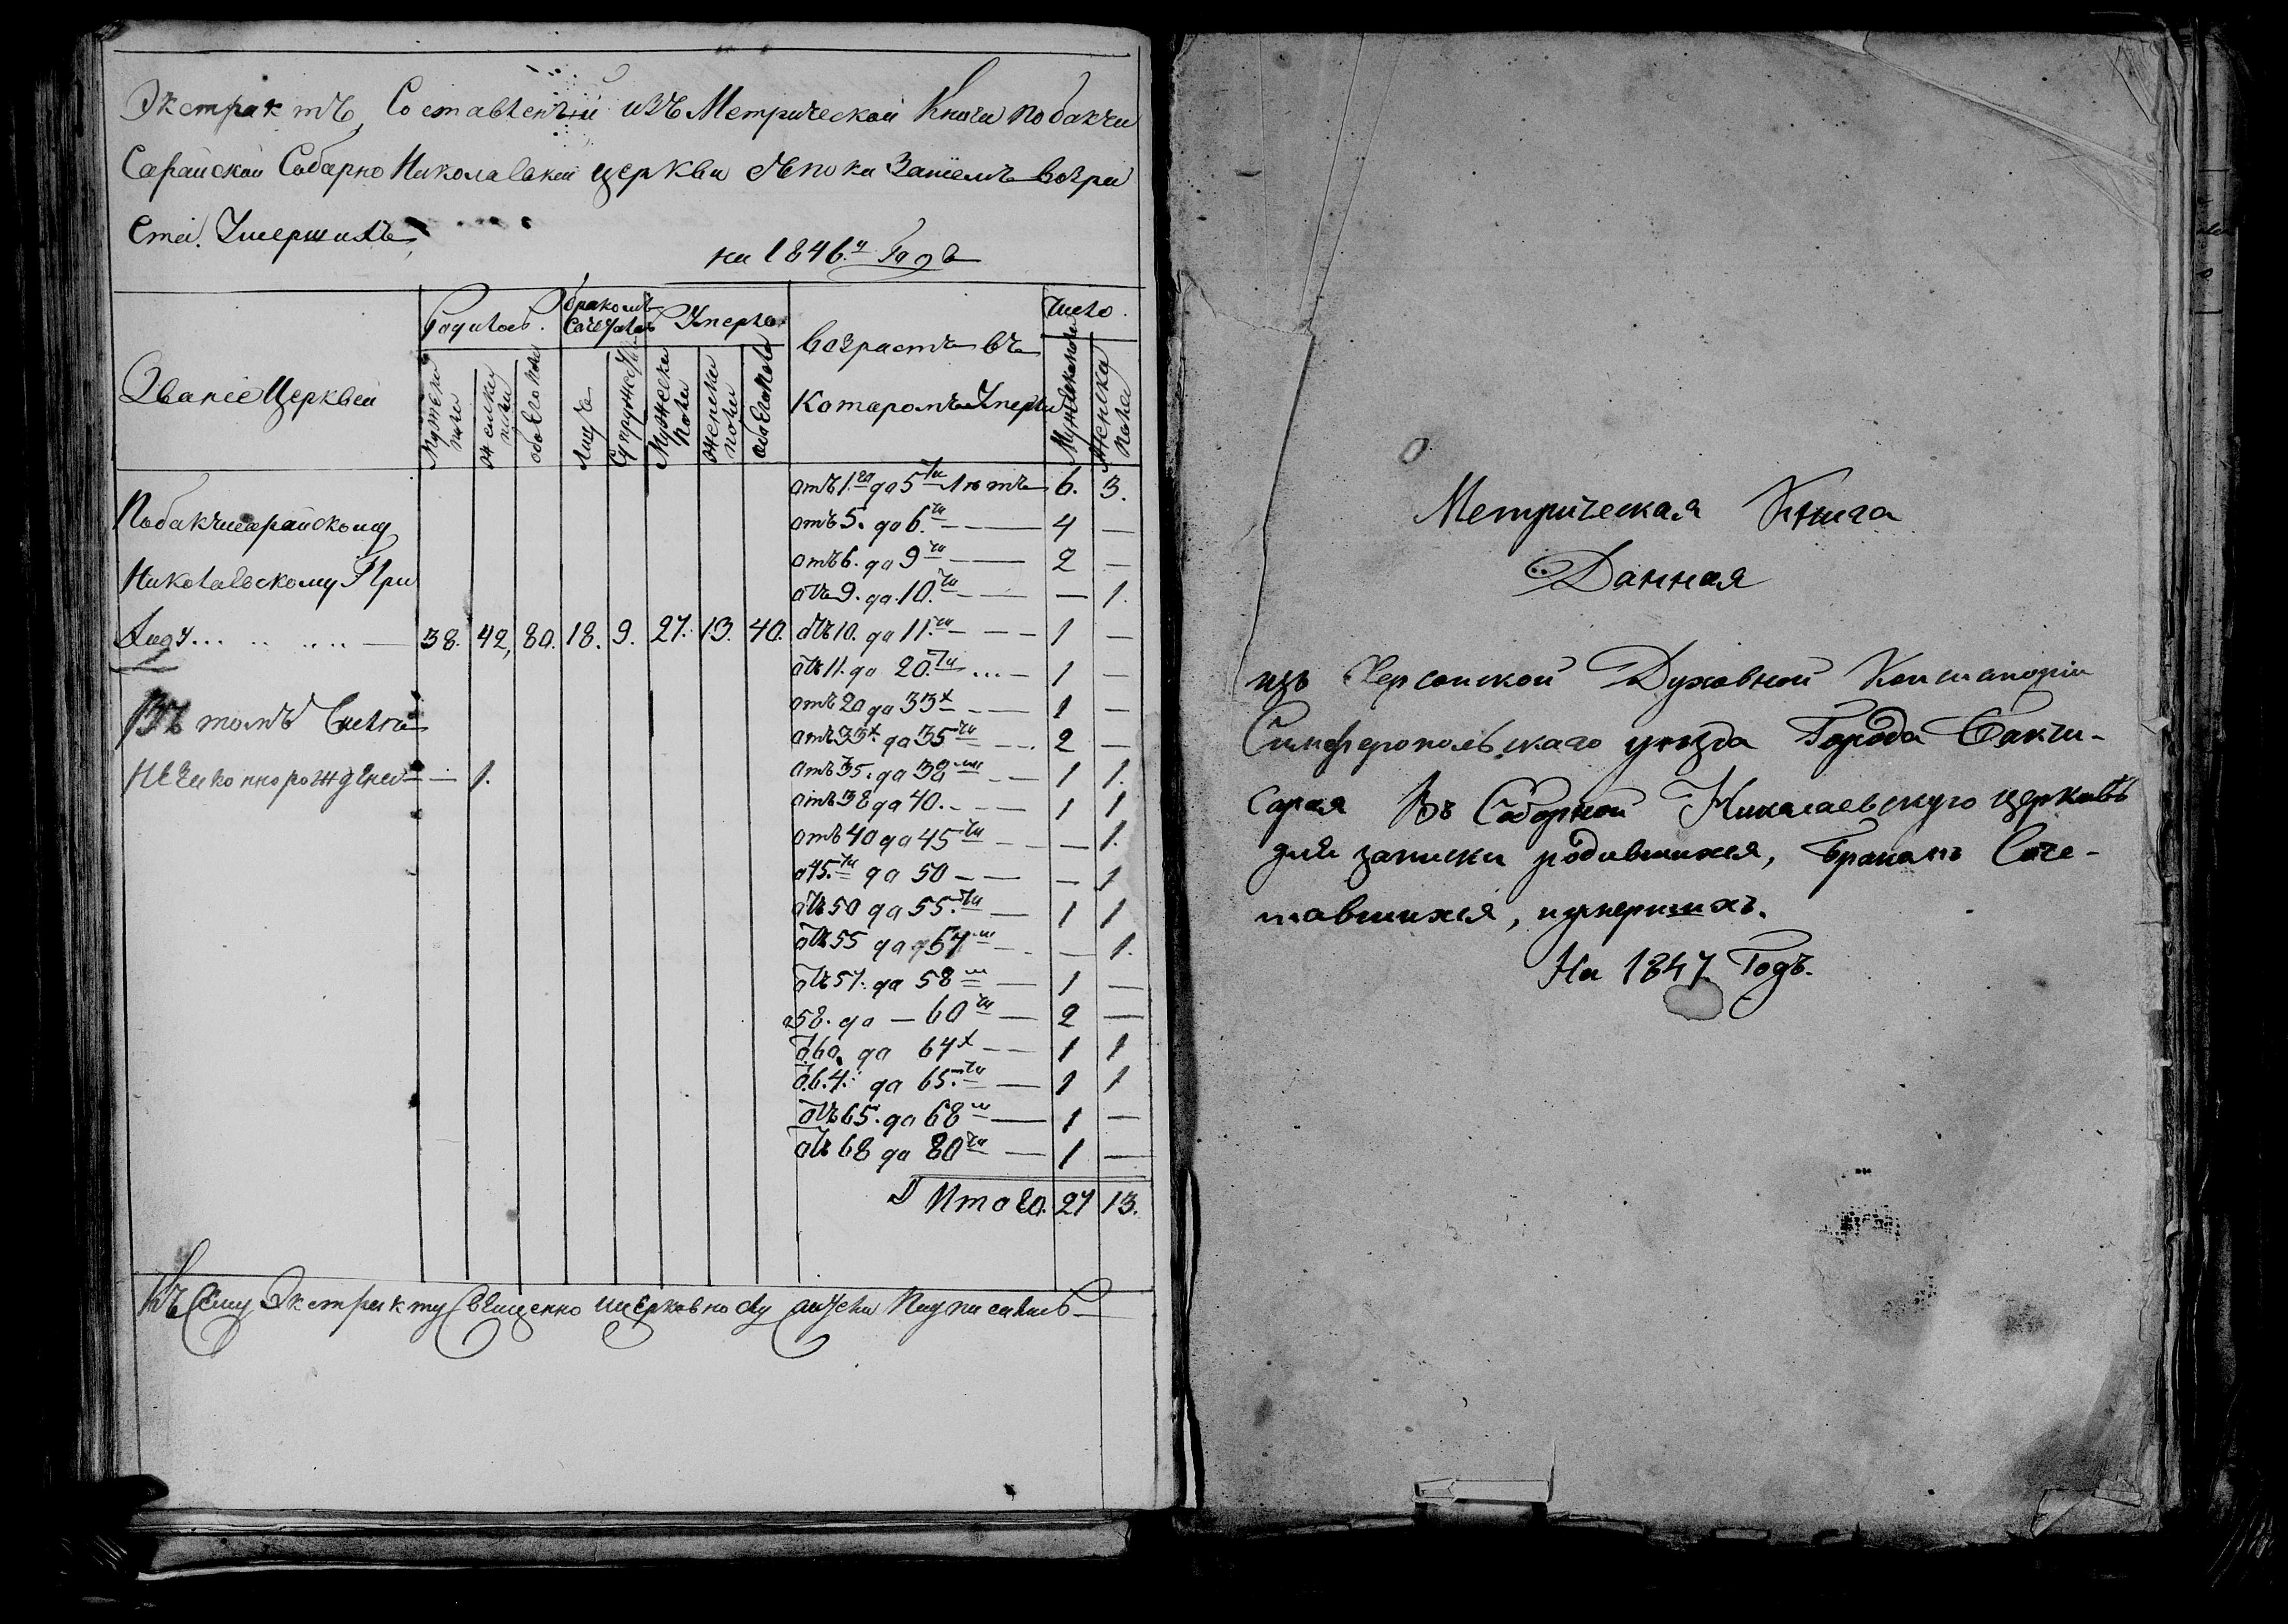 Экстрактъ, Составленый изъ Метрической Книги по бакчи
Сарайской Соборно Николаевкой церкви съ показанiемъ возра
стей. Умершихъ,
на 1846.й Годъ
Званiе Церквей
Родилось.
бракомъ Сочеталось
Умерло.
возрастъ въ Которомъ Умерли
число.
Мужеска пола
женска пола
обоего пола
лицъ
Супружествъ
Мужеска пола
женска пола
обоего пола
Мужескаго
Женска пола
Побакчисарайскому
Николаевскому При
ходу... 38. 42, 80. 18. 9. 27. 13. 40.
Въ томъ Числѣ
Незаконнорождено — — 1.
отъ 1.го до 5ти лѣтъ 6. 3.
отъ 5. до 6.ти — — 4 —
отъ 6. до 9ти — — 2 —
отъ 9. до 10.ти — — — 1.
отъ 10. до 11.ти — — — 1 —
отъ 11. до 20.ти ... — 1 —
отъ 20 до 33х — — 1 —
отъ 33х до 35ти — — 2 —
отъ 35. до 38ми — — 1 1.
отъ 38 до 40. — — — 1 1
отъ 40 до 45ти — — — 1.
о 45.ти до 50 — — — 1
отъ 50 до 55.ти — 1 1
отъ 55 до 57ми — — 1.
отъ 57. до 58ми — 1 —
о 58. до — 60ти — 2 —
о 60. до 64х — — 1 1
о 64. до 65.ти — 1 1
отъ 65. до 68ми — 1 —
отъ 68 до 80ти — 1 —
Итого. 27 13.
Къ Сему Экстракту Священно ицерковно служители Подписались
Метрическая Книга
Данная
изъ Херсонской Духовной Консисторiи
Симферопольскаго уѣзда Города Бакчи-
сарая Въ Соборной Николаевскую церковь
для записки родившихся, бракомъ Соче-
тавшихся, иумершихъ.
На 1847 Годъ.